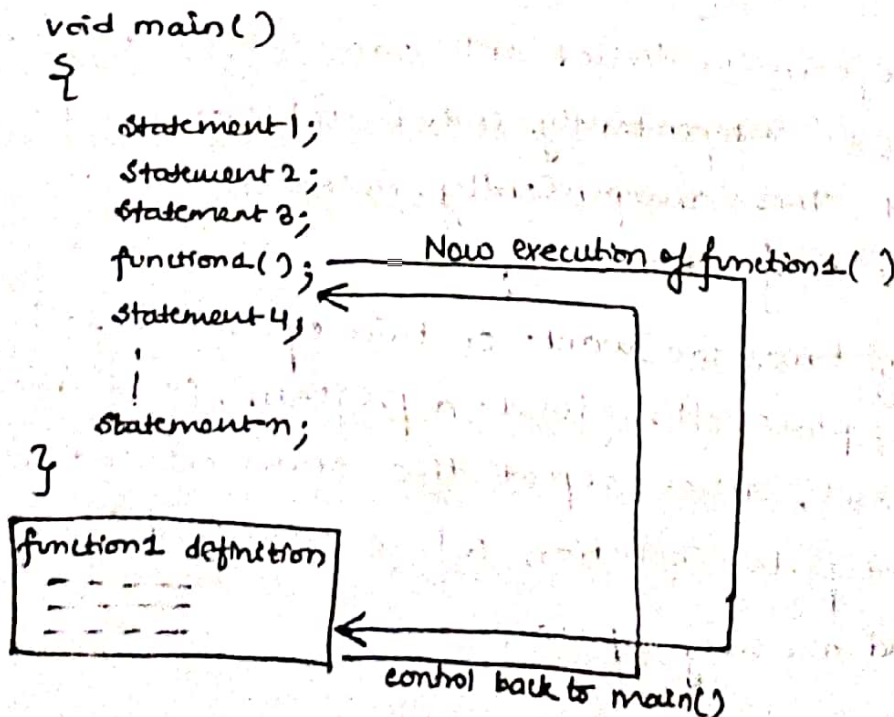 void main()
{
statement1;
statement 2;
statement 3;
function1(); Now execution of function1( )
statement 4;
statement-n;
}
function1 definition
control back to main()